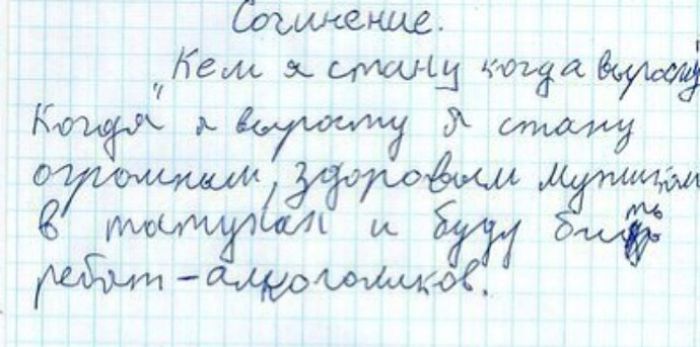 Сочинение.
"Кем я стану когда вырасту"
Когда я выросту я стану
огромным, здоровым мужиком
в татухах и буду бить
ребят-алкоголиков.